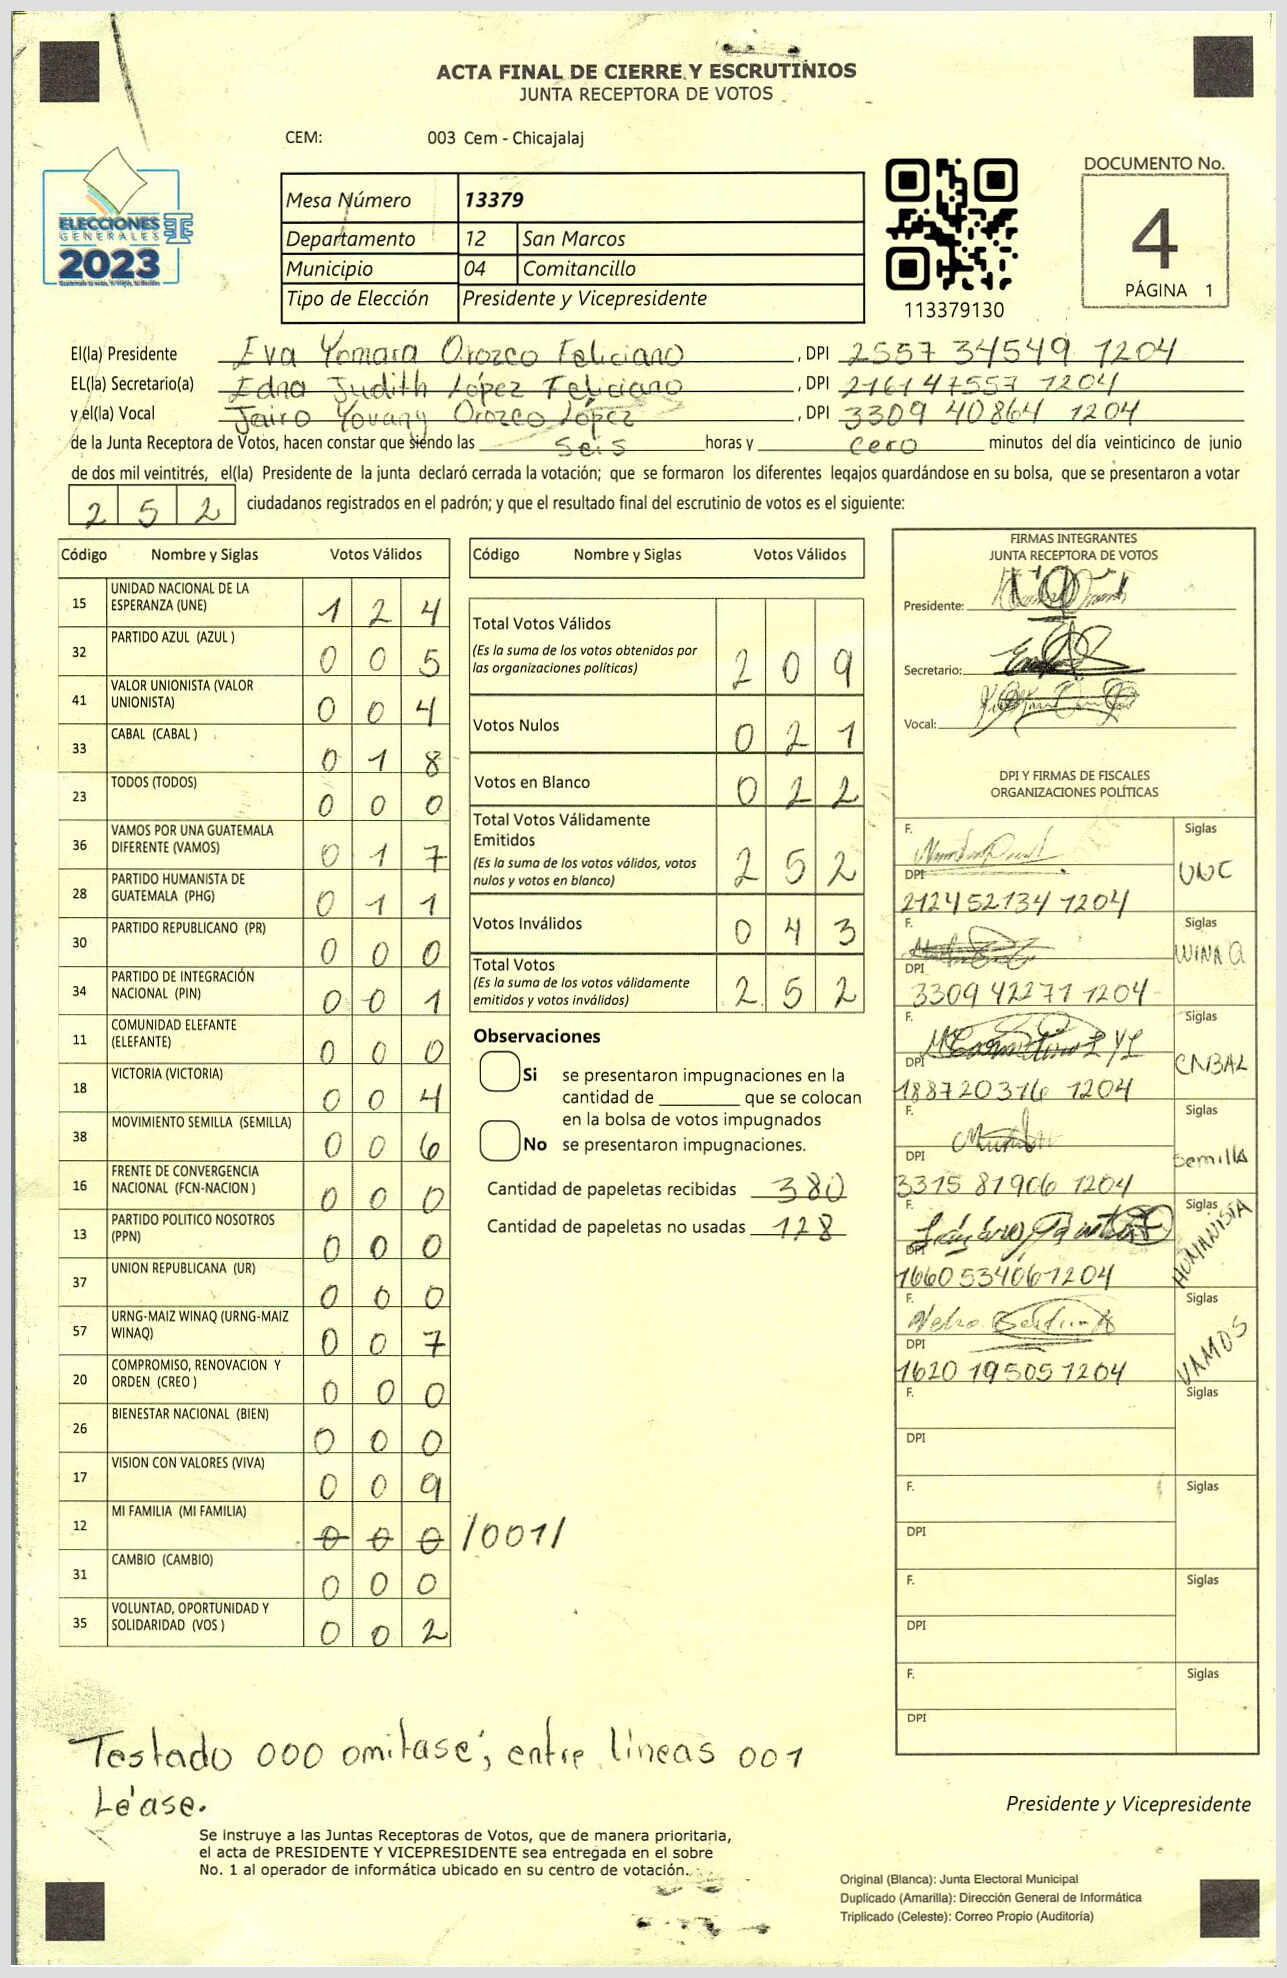 ACTA FINAL DE CIERRE Y ESCRUTINIOS
JUNTA RECEPTORA DE VOTOS
CEM: 003 Cem - Chicajalaj
ELECCIONES
GENERALES
2023
Mesa Número 13379
Departamento 12 San Marcos
Municipio 04 Comitancillo
Tipo de Elección Presidente y Vicepresidente
113379130
DOCUMENTO No.
4
PÁGINA 1
El(la) Presidente Eva Yomara Orozco Feliciano, DPI 2557 34549 1204
EL(la) Secretario(a) Edna Judith López Feliciano, DPI 2161 47557 1204
y el(la) Vocal Jairo Yovany Orozco López, DPI 3309 40864 1204
de la Junta Receptora de Votos, hacen constar que siendo las seis horas y cero minutos del día veinticinco de junio
de dos mil veintitrés, el(la) Presidente de la junta declaró cerrada la votación; que se formaron los diferentes legajos guardándose en su bolsa, que se presentaron a votar
252 ciudadanos registrados en el padrón; y que el resultado final del escrutinio de votos es el siguiente:
Código Nombre y Siglas Votos Válidos
15 UNIDAD NACIONAL DE LA ESPERANZA (UNE) 1 2 4
32 PARTIDO AZUL (AZUL ) 0 0 5
41 VALOR UNIONISTA (VALOR UNIONISTA) 0 0 4
33 CABAL (CABAL ) 0 1 8
23 TODOS (TODOS) 0 0 0
36 VAMOS POR UNA GUATEMALA DIFERENTE (VAMOS) 0 1 7
28 PARTIDO HUMANISTA DE GUATEMALA (PHG) 0 1 1
30 PARTIDO REPUBLICANO (PR) 0 0 0
34 PARTIDO DE INTEGRACIÓN NACIONAL (PIN) 0 0 1
11 COMUNIDAD ELEFANTE (ELEFANTE) 0 0 0
18 VICTORIA (VICTORIA) 0 0 4
38 MOVIMIENTO SEMILLA (SEMILLA) 0 0 6
16 FRENTE DE CONVERGENCIA NACIONAL (FCN-NACION ) 0 0 0
13 PARTIDO POLITICO NOSOTROS (PPN) 0 0 0
37 UNION REPUBLICANA (UR) 0 0 0
57 URNG-MAIZ WINAQ (URNG-MAIZ WINAQ) 0 0 7
20 COMPROMISO, RENOVACION Y ORDEN (CREO ) 0 0 0
26 BIENESTAR NACIONAL (BIEN) 0 0 0
17 VISION CON VALORES (VIVA) 0 0 9
12 MI FAMILIA (MI FAMILIA) 0 0 0 /001/
31 CAMBIO (CAMBIO) 0 0 0
35 VOLUNTAD, OPORTUNIDAD Y SOLIDARIDAD (VOS ) 0 0 2
Código Nombre y Siglas Votos Válidos
Total Votos Válidos 2 0 9
(Es la suma de los votos obtenidos por
las organizaciones políticas)
Votos Nulos 0 2 1
Votos en Blanco 0 2 2
Total Votos Válidamente
Emitidos 2 5 2
(Es la suma de los votos válidos, votos
nulos y votos en blanco)
Votos Inválidos 0 4 3
Total Votos 2 5 2
(Es la suma de los votos válidamente
emitidos y votos inválidos)
Observaciones
Si se presentaron impugnaciones en la
cantidad de ________ que se colocan
en la bolsa de votos impugnados
No se presentaron impugnaciones.
Cantidad de papeletas recibidas 380
Cantidad de papeletas no usadas 128
FIRMAS INTEGRANTES
JUNTA RECEPTORA DE VOTOS
Presidente:
Secretario:
Vocal:
DPI Y FIRMAS DE FISCALES
ORGANIZACIONES POLÍTICAS
F. Siglas
DPI UNE
2124 52134 1204
F. Siglas
DPI WINAQ
3309 42271 1204
F. Siglas
DPI CABAL
1887 20316 1204
F. Siglas
DPI Semilla
3315 81906 1204
F. Siglas
DPI HUMANISTA
1660 53406 1204
F. Siglas
DPI VAMOS
1620 19505 1204
F. Siglas
DPI
F. Siglas
DPI
F. Siglas
DPI
F. Siglas
DPI
Testado 000 omitase; entre lineas 001
Léase.
Presidente y Vicepresidente
Se instruye a las Juntas Receptoras de Votos, que de manera prioritaria,
el acta de PRESIDENTE Y VICEPRESIDENTE sea entregada en el sobre
No. 1 al operador de informática ubicado en su centro de votación.
Original (Blanca): Junta Electoral Municipal
Duplicado (Amarilla): Dirección General de Informática
Triplicado (Celeste): Correo Propio (Auditoría)